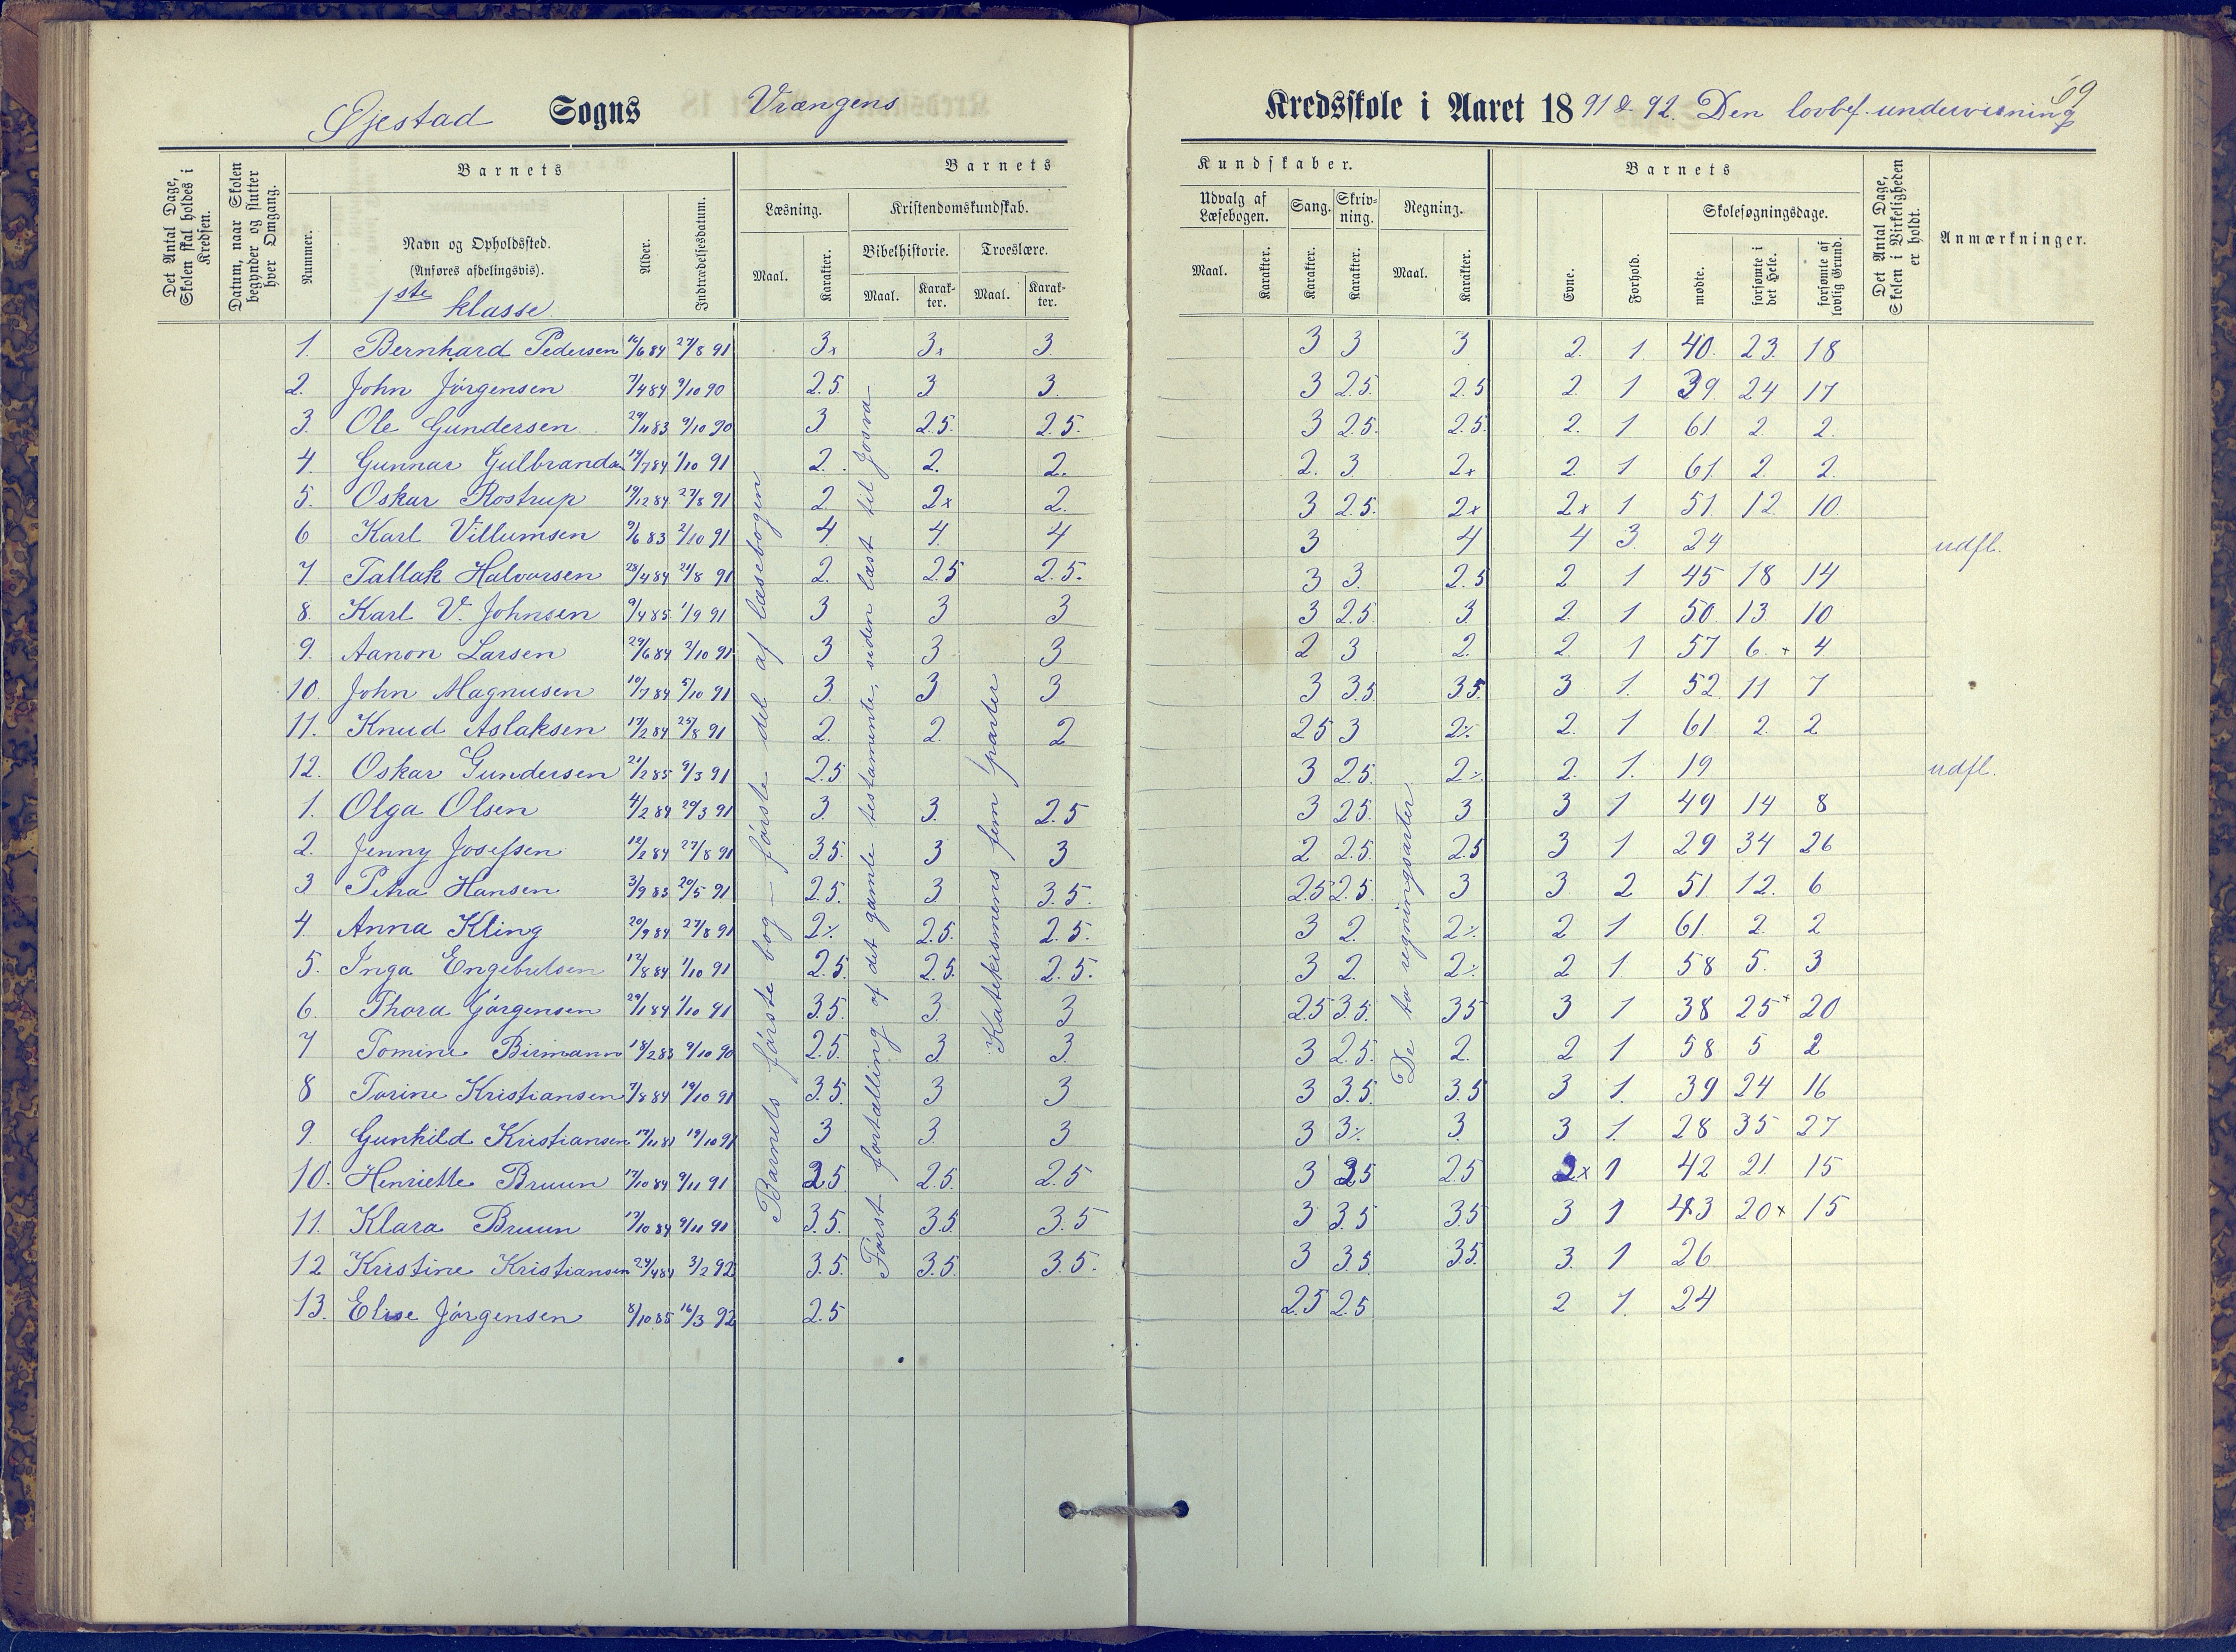 69
Øjestad Sogns Vrængens Kredsskole i Aaret 1891 & 92. Den lovbef. undervisning
Det Antal Dage, Skolen skal holdes i Kredsen.
Datum, naar Skolen begynder og slutter hver Omgang.
Barnets
Nummer.
Navn og Opholdssted.
(Anføres afdelingsvis).
1ste klasse.
Alder.
Indtrædelsesdatum.
Barnets
Læsning.
Maal.
Karakter.
Kristendomskundskab.
Bibelhistorie.
Maal.
Karakter.
Troeslære.
Maal.
Karakter.
Kundskaber.
Udvalg af Læsebogen.
Maal.
Karakter.
Sang.
Karakter.
Skrivning.
Karakter.
Regning.
Maal.
Karakter.
Barnets
Evne.
Forhold.
Skolesøgningsdage.
mødte.
forsømte i det Hele.
forsømte af lovlig Grund.
Det Antal Dage, Skolen i Virkeligheden er holdt.
Anmærkninger.
1. Bernhard Pedersen 16/6 84 27/8 91 3x 3x 3. 3 3 3 2. 1. 40. 23. 18
2. John Jörgensen 7/4 84 9/10 90 2.5. 3 3. 3 2.5. 2.5 2. 1 39. 24 17
3. Ole Gundersen 29/11 83 9/10 90 3. 2.5. 2.5. 3 2.5. 2.5. 2. 1 61. 2. 2.
4. Gunnar Gulbrandsen 19/7 84 1/10 91 2. 2. 2. 2. 3. 2x 2. 1 61. 2. 2.
5. Oskar Rostrup 19/12 84 27/8 91 2. 2x 2. 3 2.5. 2x 2x 1 51. 12. 10.
6 Karl Villumsen 9/6 83 2/10 91 4. 4. 4 3 4 4 3. 24 udfl.
7 Tallak Halvorsen 23/4 84 24/8 91 2. 2.5 2.5. 3 3. 2.5 2 1 45 18 14
8. Karl V. Johnsen 9/4 85 1/9 91 3 3 3 3 2.5. 3. 2. 1 50. 13. 10
9. Aanon Larsen 29/6 84 2/10 91 3 3. 3 2 3 2. 2. 1 57 6.+ 4
10. John Magnusen 10/7 84 5/10 91 3. 3 3 3 3.5 3.5. 3 1. 52. 11 7
11. Knud Aslaksen 17/2 84 25/8 91 2. 2. 2 2.5 3 2% 2. 1 61 2. 2
12. Oskar Gundersen 21/2 85 9/3 91 2.5 3 2.5. 2% 2. 1. 19 udfl.
1. Olga Olsen 4/2 84 29/3 91 3. 3. 2.5 3 2.5. 3 3 1 49 14 8
2. Jenny Josefsen 12/2 84 27/8 91 3.5. 3 3 2 2.5. 2.5 3 1 29 34 26
3 Petra Hansen 3/9 83 20/5 91 2.5. 3 3.5. 2.5 2.5. 3 3 2 51. 12. 6
4. Anna Kling 20/9 84 27/8 91 2% 2.5. 2.5. 3 2. 2% 2 1 61. 2. 2
5. Inga Engebretsen 12/8 84 1/10 91 2.5. 2.5. 2.5. 3 2. 2% 2 1. 58 5. 3
6. Thora Görgensen 29/1 84 1/10 91 3.5. 3. 3 2.5 3.5. 3.5 3 1 38 25+ 20
7 Tomine Birmann 18/2 83 9/10 90 2.5. 3 3. 3 2.5. 2. 2 1. 58 5 2
8 Torine Kristiansen 7/8 84 19/10 91 3.5. 3 3 3 3.5. 3.5 3 1. 39 24 16
9. Gunhild Kristiansen 17/11 81 19/10 91 3 3. 3 3 3% 3. 3 1. 28 35 27
10. Henriette Bruun 17/10 84 9/11 91 2.5 2.5. 2.5 3 3.5 2.5 2x 1 42 21. 15
11. Klara Bruun 17/10 84 9/11 91 3.5. 3.5 3.5 3 3.5 3.5 3 1 43 20+ 15
12 Kristine Kristiansen 24/4 84 3/2 92 3.5. 3.5. 3.5. 3 3.5 3.5. 3. 1 26
13. Elise Jörgensen 8/10 85 16/3 92 2.5 2.5 2.5 2 1. 24
Barnets förste bog – förste del af læsebogen
Först fortælling af det gamle testamente, siden læst til Josva
Katekismens fem parter
De to regningsarter